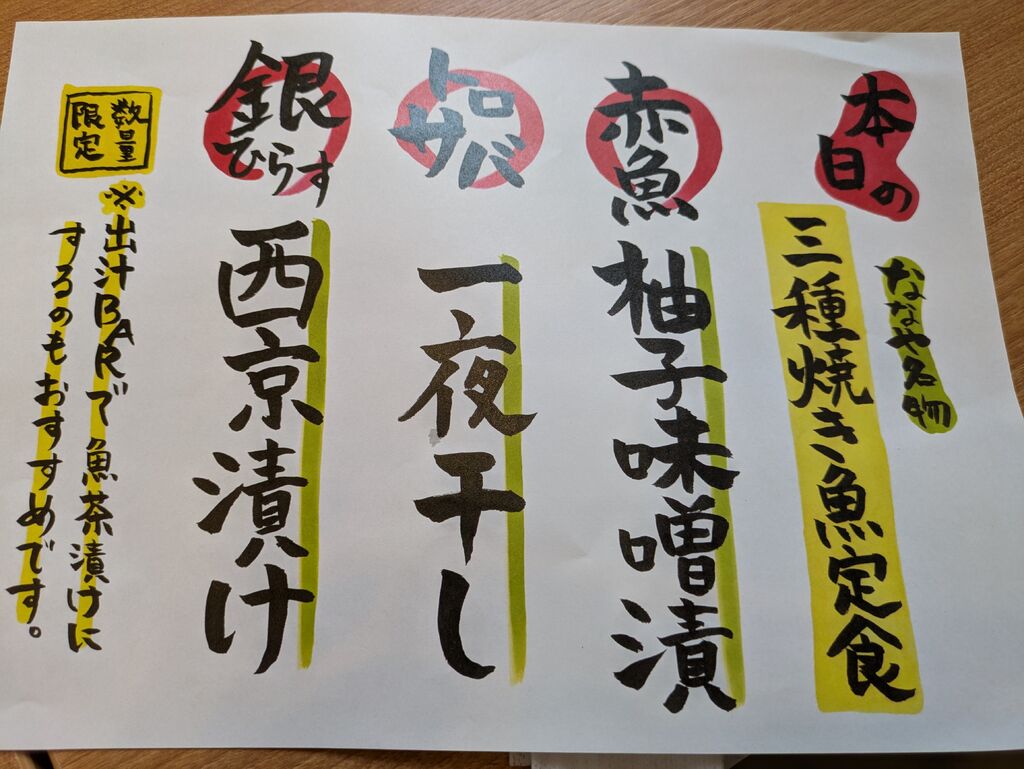 本日の
ななや名物
三種焼き魚定食
赤魚
柚子味噌漬
トロサバ
一夜干し
銀ひらす
西京漬け
数量限定
※出汁BARで魚茶漬けに
するのもおすすめです。